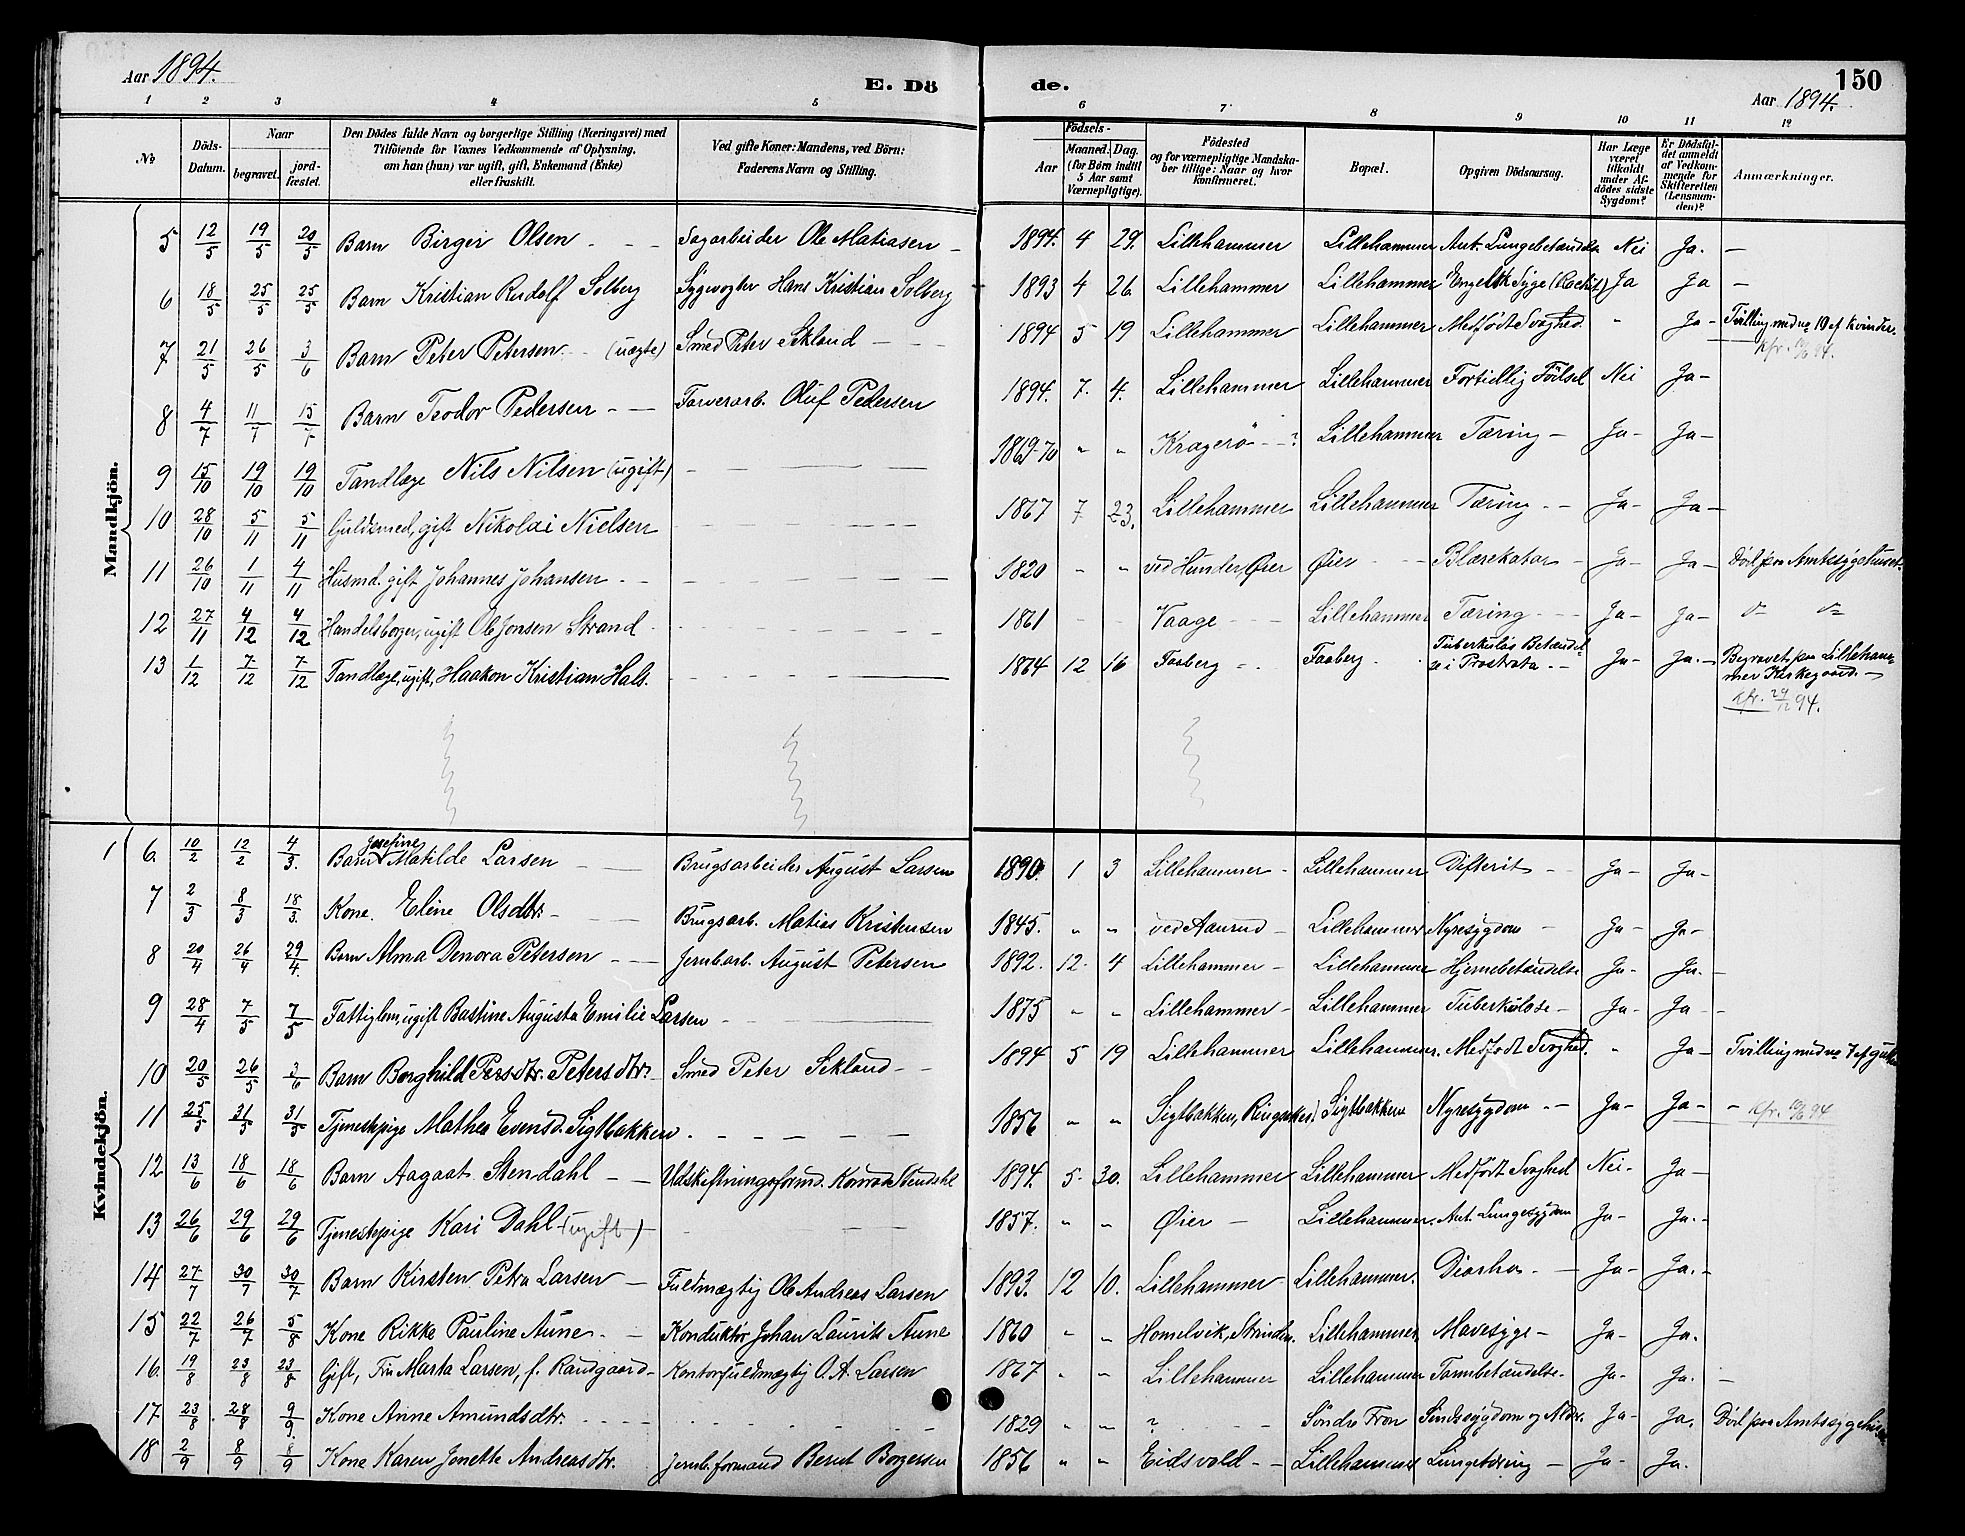 Aar 1894.
E. Dö
de.
150
Aar 1894.
1 2 3 4 5 6 7 8 9 10 11 12
No
Döds-Datum.
Naar
begravet.
jord-fæstet.
Den Dödes fulde Navn og borgerlige Stilling (Næringsvei) med Tilföiende for Voxnes Vedkommende af Oplysning, om han (hun) var ugift, gift, Enkemand (Enke) eller fraskilt.
Ved gifte Koner: Mandens, ved Börn: Faderens Navn og Stilling.
Födsels-
Aar
Maaned. Dag.
(for Börn indtil 5 Aar samt Værnepligtige).
Födested og for værnepligtige Mandskaber tillige: Naar og hvor konfirmeret.
Bopæl.
Opgiven Dödsaarsag.
Har Læge været tilkaldt under Afdödes sidste Sygdom?
Er Dödsfaldet anmeldt af Vedkommende for Skifteretten (Lensmanden)?
Anmærkninger.
Mandkjön.
5 12/5 19/5 20/5 Barn Birger Olsen - - - Sagarbeider Ole Matiasen - 1894. 4 29. Lillehammer Lillehammer Ant. Lungebetændelse Nei Ja. -
6 18/5 25/5 25/5 Barn Kristian Rudolf Solberg Sygevogter Hans Kristian Solberg 1893 4 26 Lillehammer Lillehammer Engelsk Syge (Rachit) Ja Ja -
7. 21/5 26/5 3/6 Barn Peter Petersen - (uægte) Smed Peter Sekland - - - 1894 5 19 Lillehammer Lillehammer Medfödt Svaghed. " Ja - Tvilling med no 10 af Kvinder.
8 4/7 11/7 15/7 Barn Teodor Pedersen - - Farverarb. Oluf Pedersen 1894. 7. 4. Lillehammer Lillehammer Fortidlig Födsel Nei Ja -
9 15/10 19/10 19/10 Tandlæge Nils Nilsen (ugift) - - - 1869-70 " " Kragerö - - ? Lillehammer Tæring - Ja - Ja -
10 28/10 5/11 5/11 Guldsmed, gift Nikolai Nielsen - - - 1867 7 23. Lillehammer Lillehammer Tæring - - Ja - Ja -
11 26/10 1/11 4/11 Husmd. gift Johannes Johansen - - - 1820 " " ved Hunder, Øier Øier - - Blærekatar - Ja - Ja - Död paa Amtssygehuset.
12 27/11 4/12 4/12 Handelsborger, ugift Ole Jonsen Strand - - - 1861 - - Vaage - - Lillehammer Tæring - - - Ja - Ja -
13 1/12 7/12 7/12 Tandlæge, ugift, Haakon Kristian Hals. - - - 1874 12 16 Faaberg - . Faaberg - . Tuberkuløs Betændelse i Prostrata. - - Ja - Ja. - Begravet paa Lillehammer Kirkegaard. -
Kfr. 29/12 94.
Kvindekjön.
1 6. 10/2 12/2 4/3. Barn Josefine Matilde Larsen - - Brugsarbeider August Larsen 1890. 1 3 Lillehammer - Lillehammer Difterit - - Ja - Ja -
7 2/3 8/3 18/3. Kone. Eline Olsdtr. - - - Brugsarb. Matias Kristensen 1845. " " ved Aamrud - Lillehammer Nyresygdom - Ja - Ja -
8 20/4 26/4 29/4. Barn Alma Denora Petersen - - - Jernbarb. August Petersen 1892. 12. 4 Lillehammer - Lillehammer Hjernebetændelse Ja - Ja. -
9 28/4 7/5 7/5 Fattiglem, ugift Bastine Augusta Emilie Larsen - - 1875 " " Lillehammer - Lillehammer Tuberkulose - Ja - Ja - -
10 20/5 26/5 3/6 Barn Borghild Persdtr. Petersdtr. - Smed Peter Sekland - - 1894 5 19 Lillehammer Lillehammer. Medfödt Svaghed. " Ja - Tvilling med no 7 af
11 25/5 31/5 31/5 Tjenestepige Mathea Evensd. Sigtbakken. - - - 1856 " " Sigtbakken, Ringsaker. Sigtbakken Nyresygdom - - Ja - Ja - -
12 13/6 18/6 18/6 Barn Aagaat Stendahl - - Udskiftningsformd. Konrad Stendahl 1894. 5. 30. Lillehammer Lillehammer Medfödt Svaghed Nei - Ja -
13 26/6 29/6 29/6 Tjenestepige Kari Dahl (ugift) - - - 1857. " " Øier - Lillehammer. Ant. Lungesygdom Ja - Ja. -
14 27/7 30/7 30/7 Barn Kirsten Petra Larsen - Fuldmægtig Ole Andreas Larsen 1893. 12 10. Lillehammer Lillehammer. Diarrhø. - Ja - Ja. -
15 22/7 26/7 5/8 Kone Rikke Pauline Aune. - Konduktör Johan Laurits Aune 1860 " " Homelvik, Strinden. Lillehammer Mavesyge - Ja - Ja.
16. 19/8 23/8 23/8 Gift, Fru Marta Larsen, f. Randgaard - Kontorfuldmægtig O.A. Larsen 1867 " " Lillehammer Lillehammer Tarmbetændelse - Ja - Ja. -
17. 23/8 28/8 9/9 Kone Anne Amundsdtr. - - - 1829 " " ? - - Söndre Fron Sindssygdom og Alder. Ja - Ja. Död paa Amtssygehuset
18 2/9 8/9 8/9 Kone Karen Jonette Andreasdtr. Jernb. formand Bernt Borgersen 1856 " " Eidsvold - - Lillehammer Lungetæring - Ja - Ja.